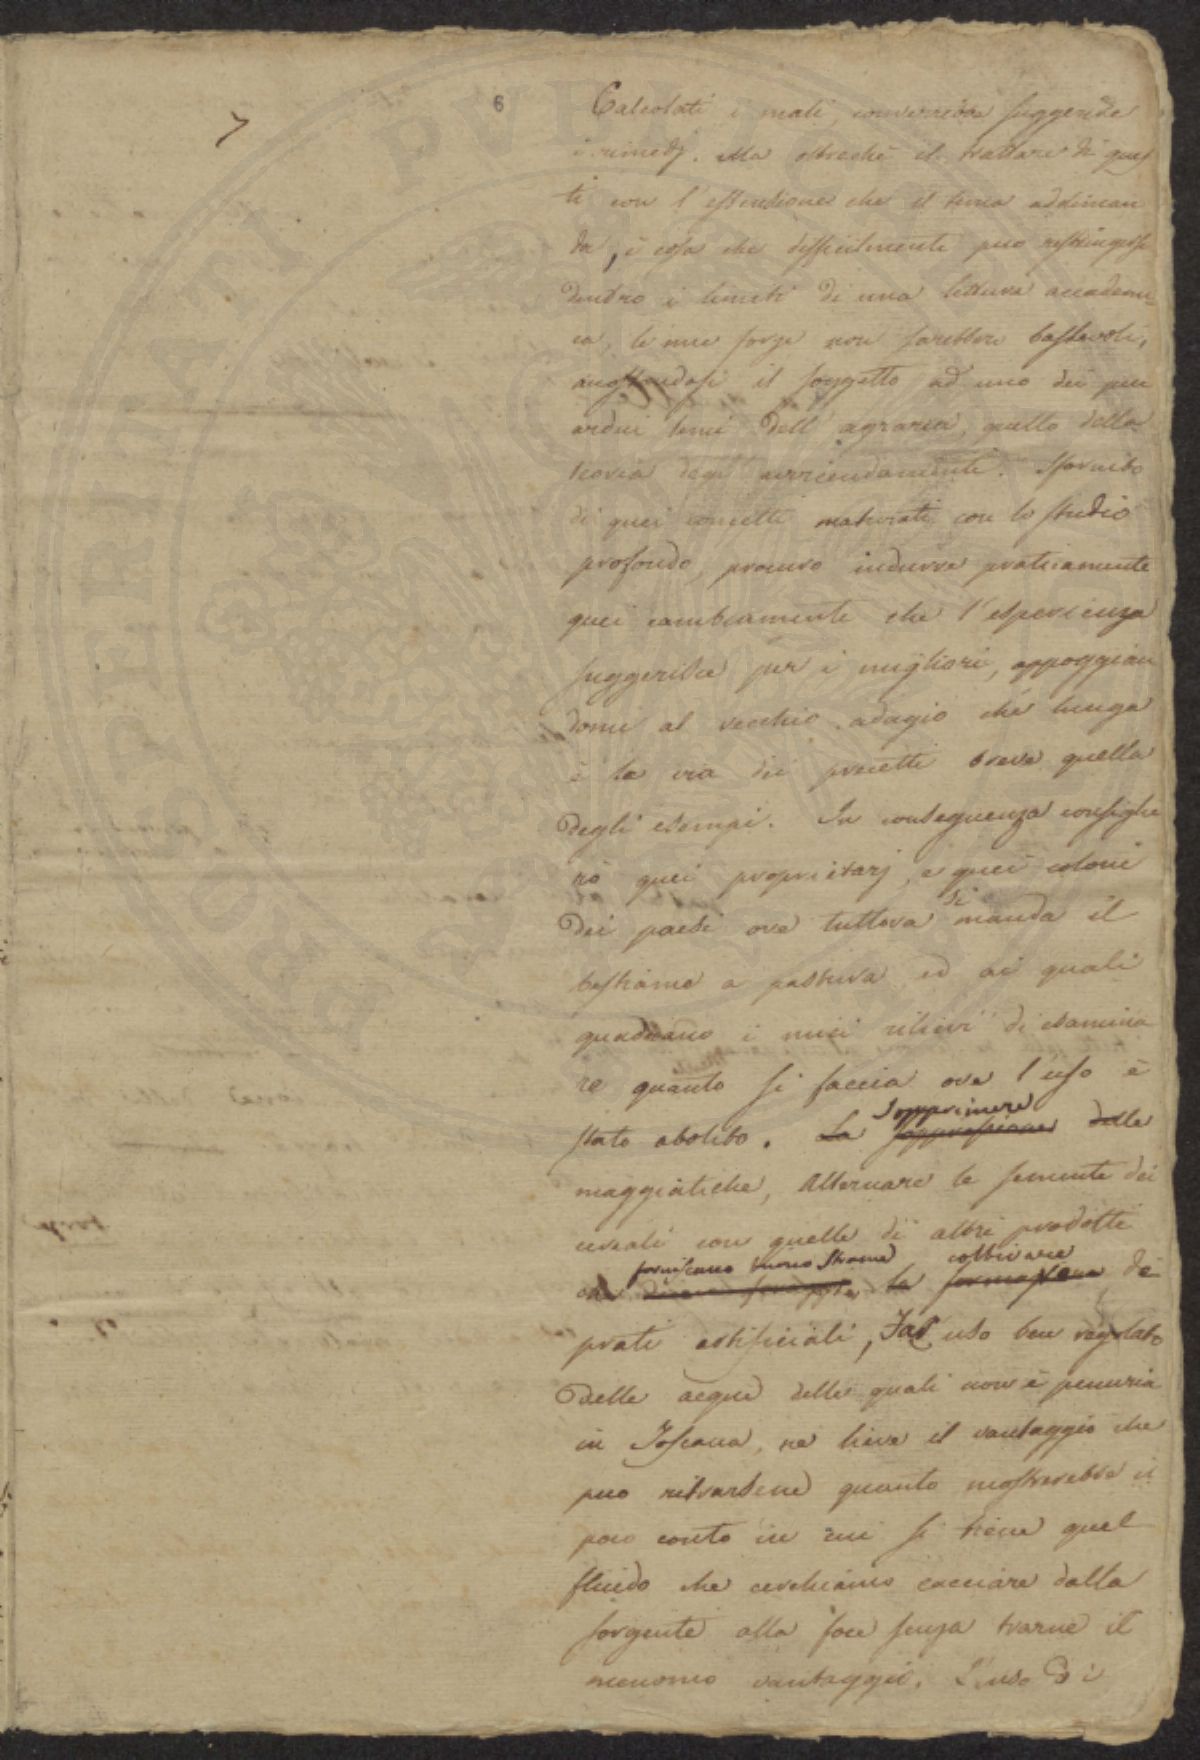 7
6
Calcolati i mali, converrebbe suggerire
i rimedj. Ma oltrechè il trattare di ques
ti con l'estensione che il tema addiman
da, è cosa che difficilmente puo restringersi
dentro i limiti di una lettura accademi=
ca, le mie forze non sarebbero bastevoli,
accostandosi il soggetto ad uno dei piu
ardui temi dell'agraria, quello della
teoria degli avvicendamenti. Sfornito
di quei concetti maturati con lo studio
profondo, procuro indurre praticamente
quei cambiamenti che l'esperienza
suggerisce per i migliori, appoggian
domi al vecchio adagio che lunga
è la via dei precetti breve quella
degli esempi. In conseguenza consiglie
rò quei proprietarj, e quei coloni
dei paesi ove tuttora si manda il
bestiame a pastura ed ai quali
quadrano i miei rilievi di esamina
re quanto si faccia ove l'uso è
stato abolito. La soppressione delle
Sopprimere
maggiatiche, Alternare le semente dei
cereali con quelle di altri prodotti
forniscano buono strame, coltivare
che la formazione dei
prati artificiali, Far uso ben regolato
delle acque delle quali non è penuria
in Toscana, ne lieve il vantaggio che
puo ritrarsene quanto mostrerebbe il
poco conto in cui si tiene quel
fluido che cerchiamo cacciare dalla
sorgente alla foce senza trarne il
menomo vantaggio. L'uso di